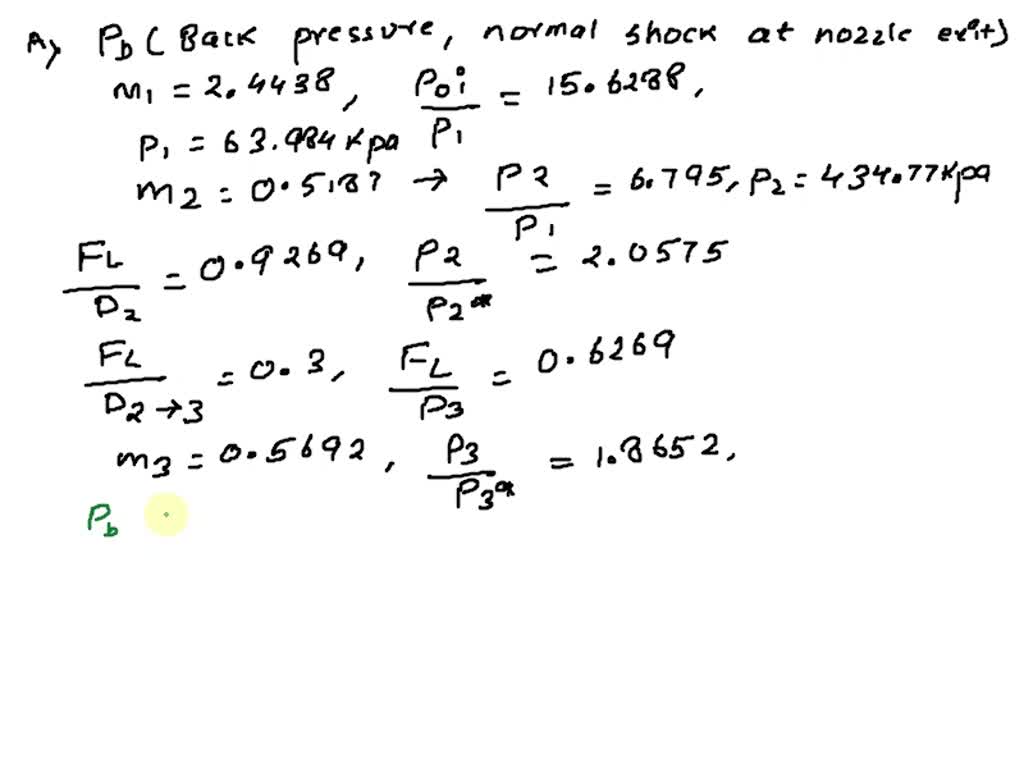 A) Pb ( Back pressure, normal shock at nozzle exit)
m1 = 2.4438, Poi/P1 = 15.6288,
P1 = 63.984 Kpa
m2 = 0.5187 → P2/P1 = 6.795, P2 = 434.77 Kpa
FL/D2 = 0.9269, P2/P2* = 2.0575
FL/D2→3 = 0.3, FL/P3 = 0.6269
m3 = 0.5692, P3/P3* = 1.8652,
Pb